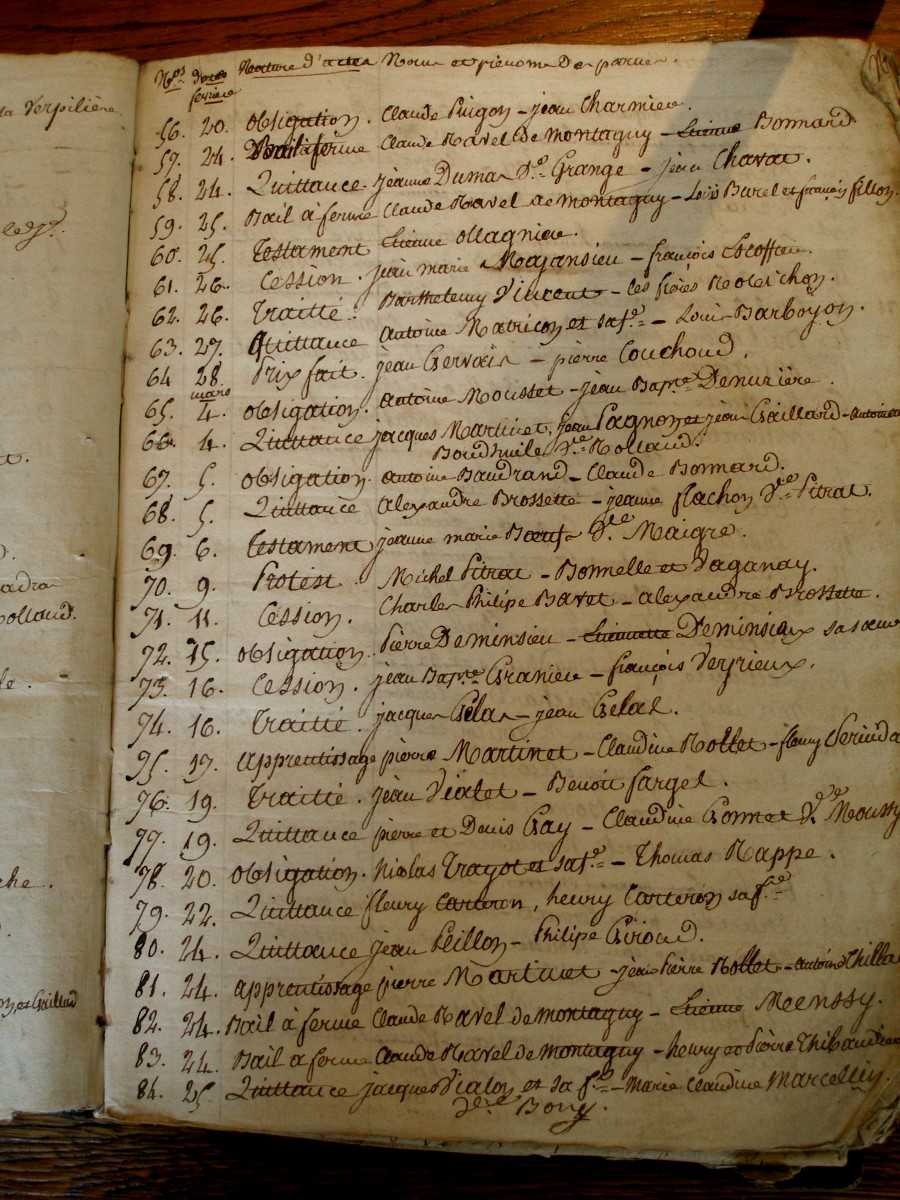 la Verpilière
Nos Dates Nature d'actes Noms et prénoms Des parties.
fevrier
56. 20. obligation. Claude Guigon - jean Charmier.
57. 24. Bail à ferme Claude Ravel De montagny - Etienne Bonnard
58. 24. Quittance. jeanne Dumas Ve. Grange - jean Chavat.
59. 25. Bail à ferme Claude Ravel de montagny - Louis Burel et françois fillon.
60. 25. Testament Etienne ollagnier.
61. 26. Cession. jean marie - françois Escoffier.
62. 26. Traitté. Barthelemy Vincent - les frères Robichon.
63. 27. Quittance Antoine Matricon et sa fe. - Louis Barboyon.
64 28. Prix fait. jean Gervais - pierre Couchoud.
mars
65. 4. obligation. antoine Mousset - jean Bapte. Denuzière.
66. 4. Quittance jacques Martinet, jean Pagnon et jean Gaillard - Antoine
Ve. Rolland.
67. 5. obligation. antoine Baudrand - Claude Bonnard.
68. 5. Quittance alexandre Brossette - jeanne flachon Ve. Pitrat.
69. 6. Testament jeanne marie Bœuf Ve. Maigre.
70. 9. Protest. Michel Pitrat - Bonnelle et Daganay.
71. 11. Cession. Charles Philipe Bavet - alexandre Brossette.
72. 15. obligation. Pierre Deminsieu - Etiennette Deminsieux sa sœur
73. 16. Cession. jean Bapte. Granier - françois Verrieux.
74. 16. Traitté. jacques Gelas - jean Gelas.
75. 17. apprentissage pierre Martinet - Claudine Rollet - fleury
76. 19. Traitté. jean Vialet - Benoit farget.
77. 19. Quittance pierre et Denis Gay - Claudine Gonnet Ve. Moussy
78. 20. obligation. Nicolas Tragot et sa fe. - Thomas Rappe.
79. 22. Quittance fleury Carteron, henry Carteron sa fe
80. 24. Quittance jean Peillon - Philipe Giroud.
81. 24. apprentissage pierre Martinet - jean Pierre Rollet - antoine Thilla
82. 24. Bail à ferme Claude Ravel de montagny - Etienne Menssy.
83. 24. Bail a ferme Claude Ravel de montagny - henry et Pierre Thibaudier
84. 25. Quittance jacques Vialon et sa fe. - Marie Claudine Marcellin
Ve. Bony.